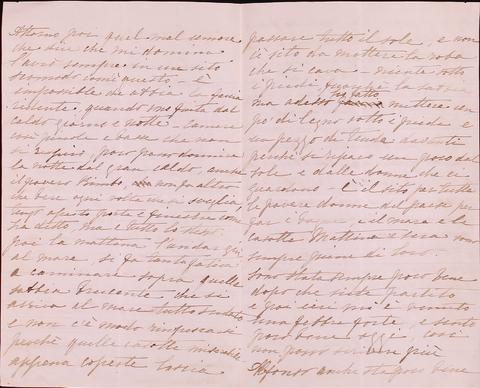 Attorno poi quel mal umore
che dici che mi domina
l'avrò sempre in un sito
scomodo come questo. È
impossibile che abbia la
quando sono finita dal
caldo giorno e notte. Camere
così piccole e basse che non
si respira, poco posso dormire
la notte dal gran caldo, anche
il povero Bimbo, non fa altro
che bere ogni volta che si sveglia
tengo aperto porte e finestre come
ha detto, ma è tutto lo stesso.
poi la mattina l'andar giù
al mare, si fa tanta fatica
a camminare sopra quella
sabbia bruciante che si
arriva al mare tutti sudati
e non c'è modo rinfrescarsi
perché quelle casotte miserabili
appena coperte lascia
passare tutto il sole, e non
ci sito da mettere la roba
che si cava. niente sotto
i piedi, la sabbia
ma adesso ho fatto mettere un
pò di legno sotto i piedi e
un pezzo di tenda avanti
perché si ripari un poco dal
sole e dalle donne che ci
guardano. È il sito per tutte
le povere donne del paese per
far i bagni, e il mare e le
casotte Mattina e sera sono
sempre piene di loro.
Sono stata sempre poco bene
dopo che siete partito
e poi ieri mi è venuto
una febbre forte, e sento
poco bene oggi
non posso scrivere più
Alfonso anche sta poco bene